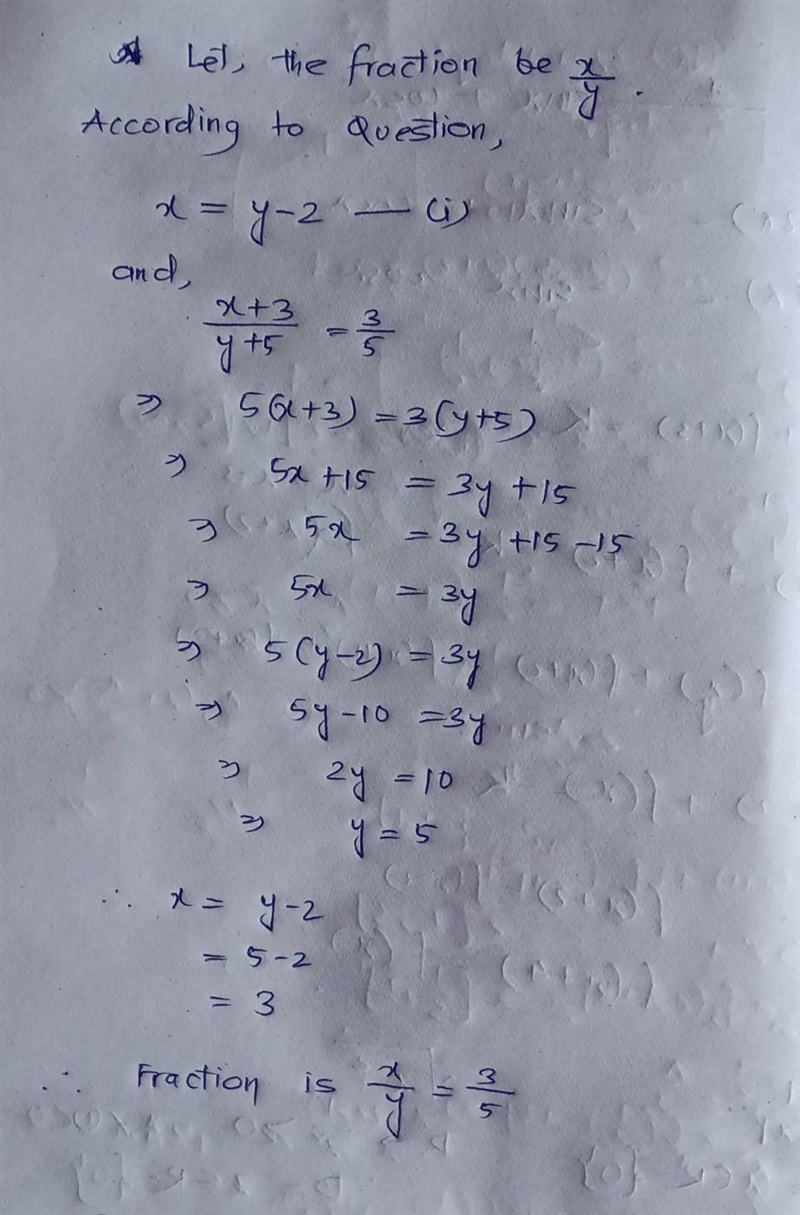 Let, the fraction be x/y.
According to Question,
x = y-2 — (i)
and,
x+3/y+5 = 3/5
⇒ 5(x+3) = 3(y+5)
⇒ 5x+15 = 3y+15
⇒ 5x = 3y+15-15
⇒ 5x = 3y
⇒ 5(y-2) = 3y
⇒ 5y-10 = 3y
⇒ 2y = 10
⇒ y = 5
∴ x = y-2
= 5-2
= 3
∴ Fraction is x/y = 3/5